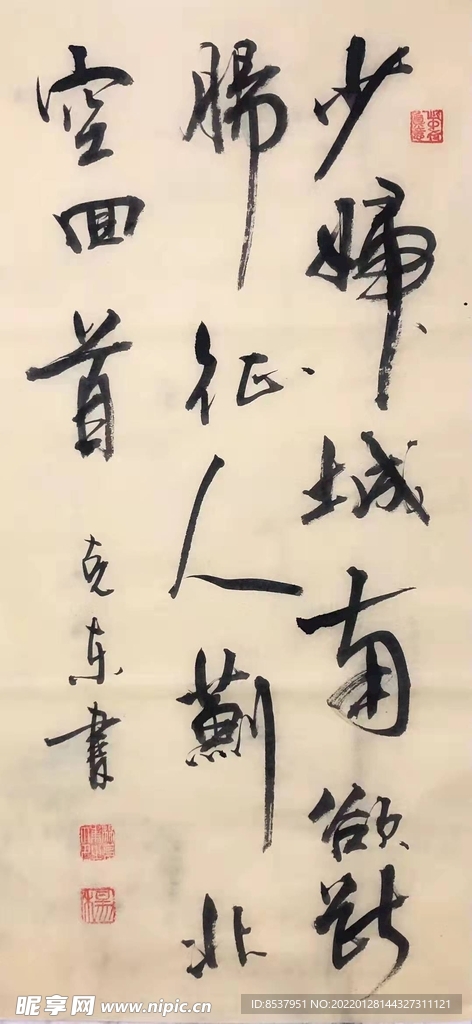 少婦城南欲斷
腸征人薊北
空回首
克东書
昵享网 www.nipic.cn
ID:8537951 NO:20220128144327311121